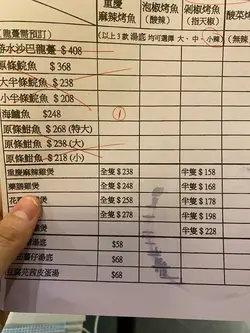 重慶 麻辣烤魚 泡椒烤魚 (酸辣) 剁椒烤魚 (指天椒) 酸菜
(龍躉需預訂) (以上3款湯底 均可選擇 大、中、小辣) (無辣
游水沙巴龍躉 $408
原條鯇魚 $368
大半條鯇魚 $238
小半條鯇魚 $208
海鱸魚 $248 ①
原條鮭魚 $268 (特大)
原條鮭魚 $238 (大)
原條鮭魚 $218 (小)
重慶麻辣雞煲 全隻 $238 半隻 $158
藥膳雞煲 全隻 $248 半隻 $168
花 全隻 $258 半隻 $178
全隻 $278 半隻 $198
半隻 $228
湯底 $58
仔湯底 $68
豆腐芫茜皮蛋湯 $68